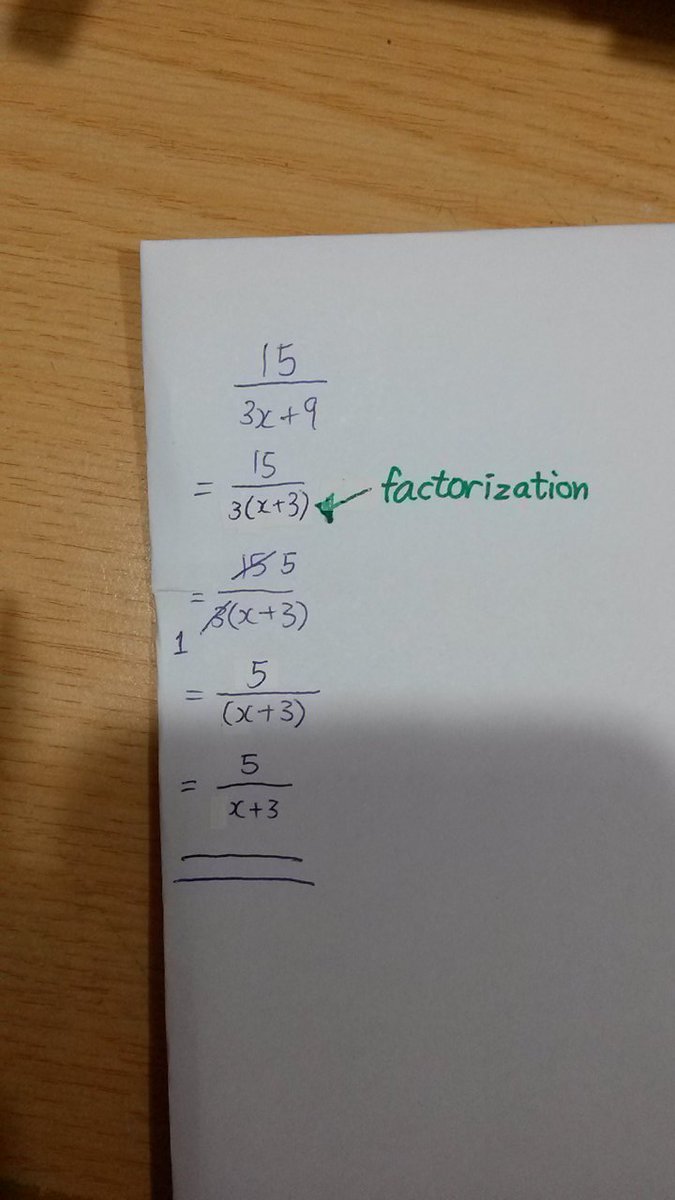 15
3x+9
= 15
3(x+3) factorization
= 15 5
3(x+3)
1
= 5
(x+3)
= 5
x+3